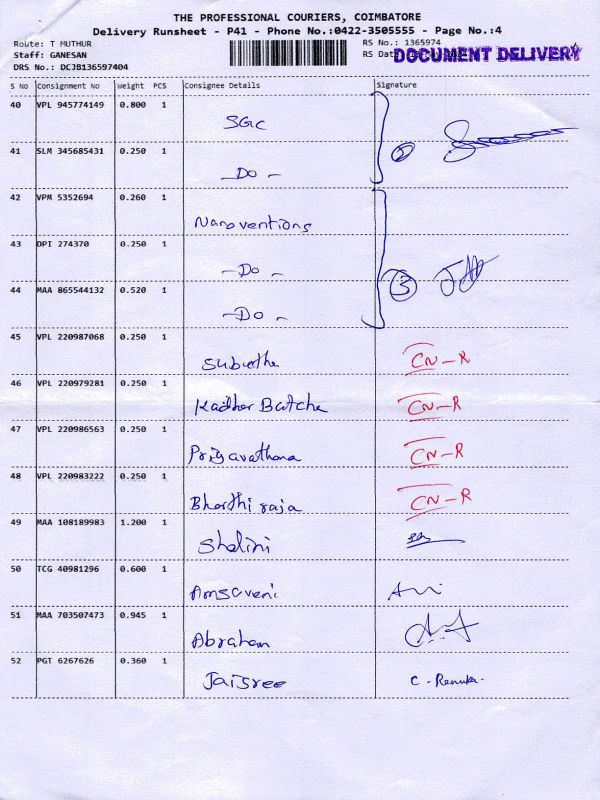 THE PROFESSIONAL COURIERS, COIMBATORE
Delivery Runsheet - P41 - Phone No.:0422-3505555 - Page No.:4
Route: T MUTHUR
RS No.: 1365974
Staff: GANESAN
RS Dat
DOCUMENT DELIVERY
DRS No.: DCJB136597404
S No Consignment No Weight PCS Consignee Details Signature
40 VPL 945774149 0.800 1
SGC
41 SLM 345685431 0.250 1
- Do -
2
42 VPM 5352694 0.260 1
Nanoventions
43 DPI 274370 0.250 1
- Do -
3
44 MAA 865544132 0.520 1
- Do -
45 VPL 220987068 0.250 1
CN-R
46 VPL 220979281 0.250 1
Kadher Batcha CN-R
47 VPL 220986563 0.250 1
Priyavathana CN-R
48 VPL 220983222 0.250 1
Bharthi raja CN-R
49 MAA 108189983 1.200 1
Shalini
50 TCG 40981296 0.600 1
Amsaveni
51 MAA 703507473 0.945 1
Abraham
52 PGT 6267626 0.360 1
Jaisree C. Renuka.